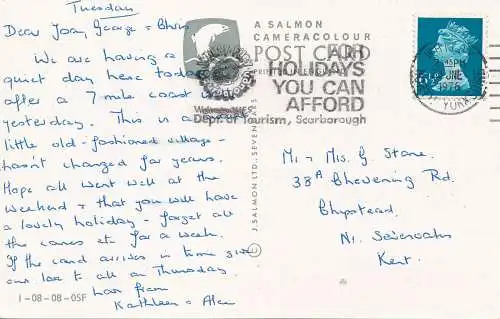 Tuesday
Dear Joan, George & Chris,
We are having a
quiet day here today
after a 7 mile coast
yesterday. This is a
little old-fashioned village -
hasn't changed for years.
Hope all went well at the
weekend & that you will have
a lovely holiday - forget all
the cares etc for a week.
If the card arrives in time give
our love to all on Thursday
Love from
Kathleen & Alan
1-08-08-05F
A SALMON
CAMERACOLOUR
POST CARD
PRINTED IN
FOR
HOLIDAYS
YOU CAN
AFFORD
Dept. of Tourism, Scarborough
J. SALMON LTD., SEVENOAKS
©
6½P
PM
JUNE
1976
YORK
Mr & Mrs G Stone
38A Chevening Rd
Chipstead
Nr Sevenoaks
Kent.